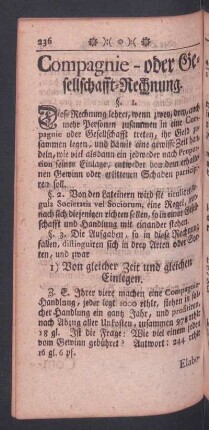 236
Compagnie - oder Ge-
sellschafft-Rechnung.
§. 1.
Diese Rechnung lehret, wenn zwey, drey, auch
mehr Personen zusammen in eine Com-
pagnie oder Gesellschafft treten, ihr Geld zu-
sammen legen, und damit eine gewisse Zeit han-
deln, wie viel alsdann ein jedweder nach
seinem Einlage, entweder von dem erhaltenen
Gewinn oder erlittenen Schaden participi-
ren soll.
§. 2. Von den Lateinern wird sie titulirt: Re-
gula Societatis vel Sociorum, eine Regel,
nach sich diejenigen richten sollen, so in einer Gesell-
schafft und Handlung mit einander stehen.
§. 3. Die Aufgaben, so in diese Rechnung
fallen, distinguiren sich in drey Arten oder Sor-
ten, und zwar
1) Von gleicher Zeit und gleichen
Einlegen.
Z. E. Ihrer viere machen eine Compagnie-
Handlung, jeder legt 1000 rthlr, stehen in sol-
cher Handlung ein gantz Jahr, und profitiren
nach Abzug aller Unkosten, zusammen 978 rthlr
18 gl. Ist die Frage: Wie viel einem jeden
vom Gewinn gebühret? Antwort: 244 rthlr
16 gl. 6 pf.
Elabo-